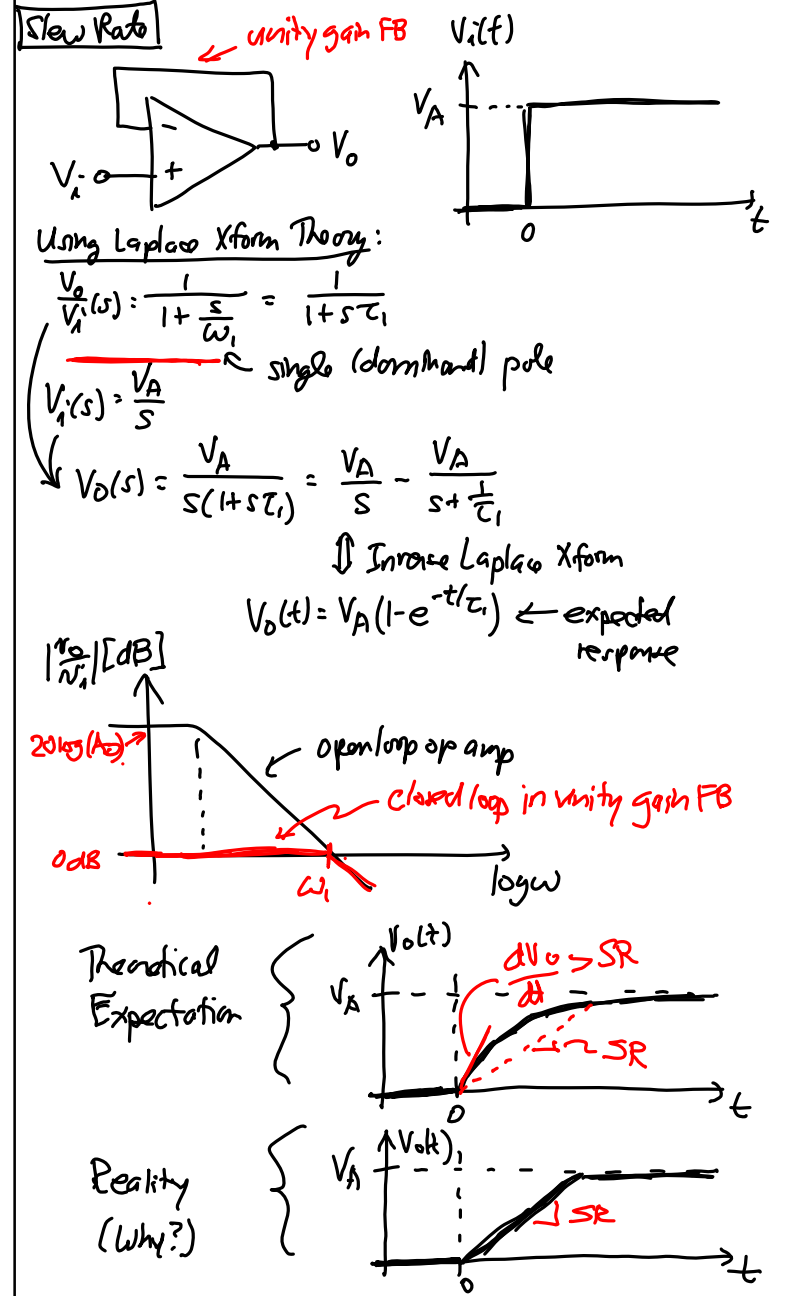 Slew Rate
unity gain FB
Vi(t)
VA
-
+
Vi
Vo
0
t
Using Laplace Xform Theory:
Vo/Vi(s) = 1/(1+s/ω1) = 1/(1+sτ1)
single (dominant) pole
Vi(s) = VA/s
Vo(s) = VA/(s(1+sτ1)) = VA/s - VA/(s+1/τ1)
⇕ Inverse Laplace Xform
Vo(t) = VA(1-e^-t/τ1) ← expected
response
|vo/vi| [dB]
20log(Ao)
open loop op amp
closed loop in unity gain FB
0dB
ω1
log ω
Theoretical
Expectation
Vo(t)
VA
dVo/dt > SR
SR
0
t
Reality
(Why?)
Vo(t)
VA
SR
0
t